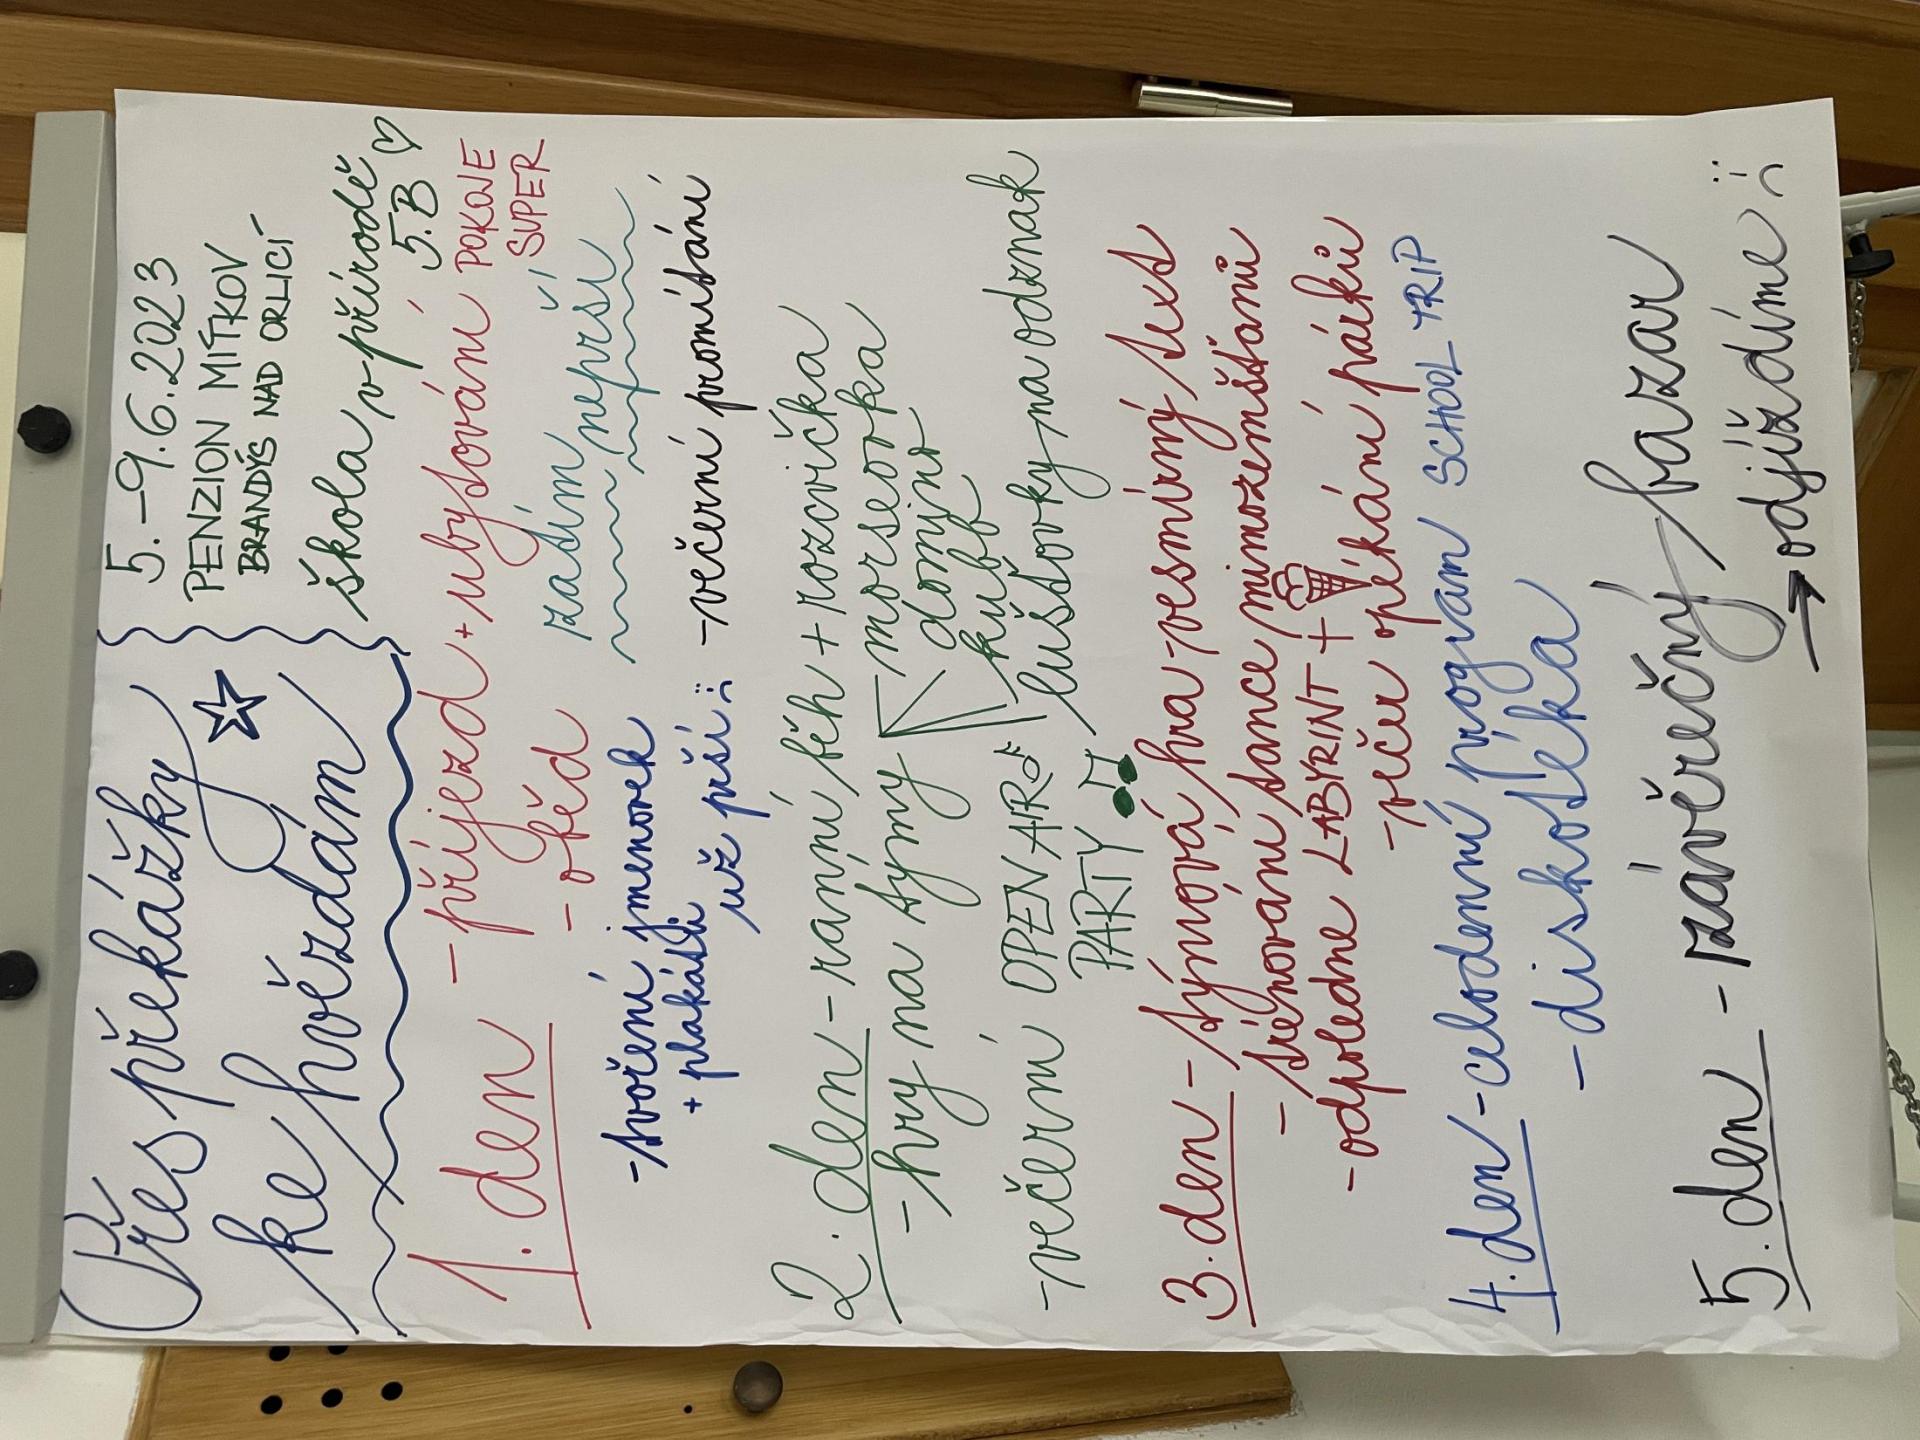 Přes překážky
ke hvězdám
5.-9.6.2023
PENZION MÍTKOV
BRANDÝS NAD ORLICÍ
škola v přírodě
5.B
1. den - příjezd + ubytování POKOJE
SUPER
- oběd
zatím neprší
- tvoření jmenovek
+ plakátů
už prší
- večerní promítání
2. den - ranní běh + rozcvička
- hry na týmy
morseovka
domino
kubb
luštovky na odznak
- večerní OPEN AIR
PARTY
3. den - týmová hra - vesmírný text
- trénování tance mimozemšťanů
- odpoledne LABYRINT +
- večer opékání párků
4. den - celodenní program SCHOOL TRIP
- diskotéka
5. den - závěrečný bazar
→ odjíždíme :(